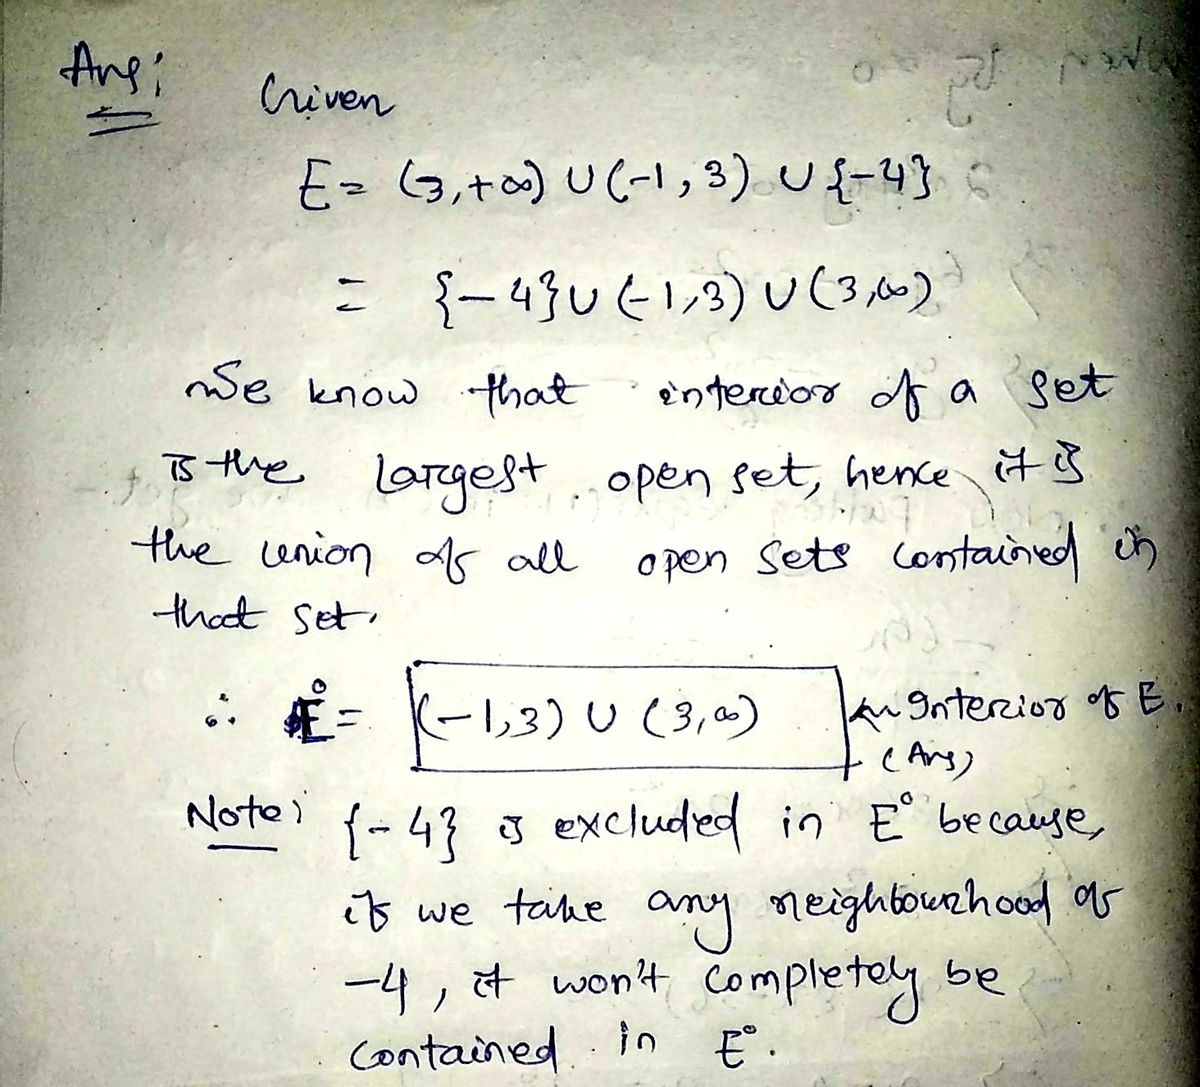 Ans:
Given
E = (3,+∞) ∪ (-1, 3) ∪ {-4}
= {-4} ∪ (-1,3) ∪ (3,∞)
We know that interior of a set
is the largest open set, hence it is
the union of all open sets contained in
that set.
∴ E° = (-1,3) ∪ (3,∞) ← Interior of E.
(Ans)
Note: {-4} is excluded in E° because,
if we take any neighbourhood of
-4, it won't completely be
contained in E°.